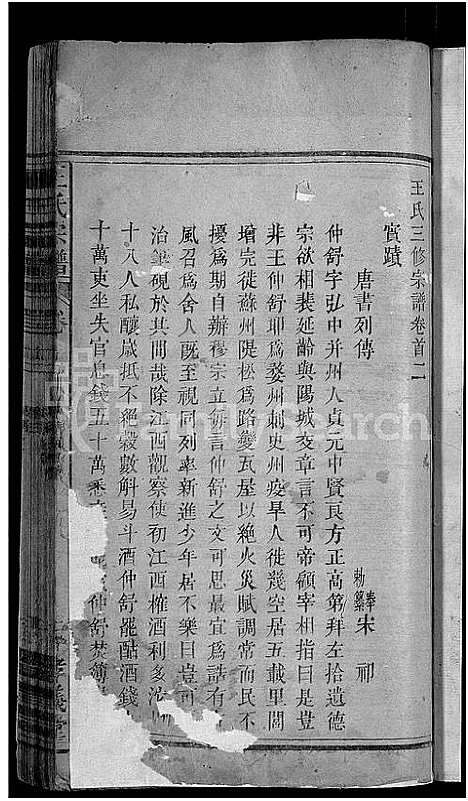 王氏三修宗譜卷首二
實蹟
唐書列傳
奉
勅纂宋祁
仲舒字弘中并州人貞元中賢良方正高第拜左拾遺德
宗欲相裴延齡與陽城交章言不可帝顧宰相指曰是豈
非王仲舒耶爲婺州刺史州疫旱人徙幾空居五載里閭
增完徙蘇州隄松爲路變瓦屋以絶火災賦調常而民不
擾爲期自辦穆宗立每言仲舒之文可思最宜爲誥有
風召爲舍人既至視同列率新進少年居不樂曰豈可
治筆硯於其間哉除江西觀察使初江西榷酒利多
十八人私釀歲抵不絕穀數斛易斗酒仲舒罷酤酒錢
十萬吏坐失官息錢五十萬悉
仲舒焚簿
王氏宗譜
卷
孝義堂
FamilySearch